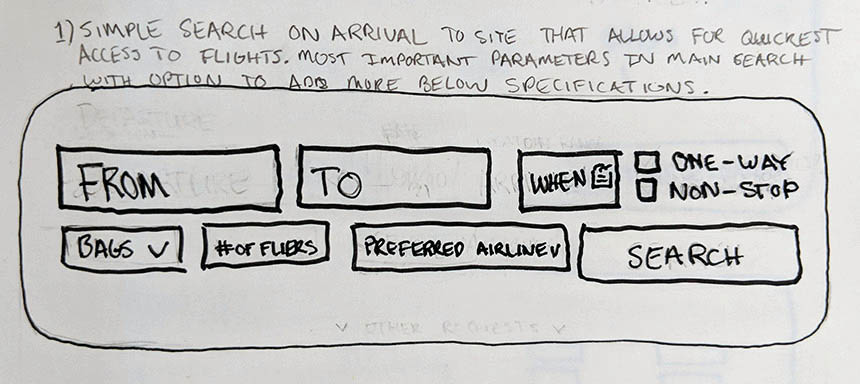 1) SIMPLE SEARCH ON ARRIVAL TO SITE THAT ALLOWS FOR QUICKEST
ACCESS TO FLIGHTS. MOST IMPORTANT PARAMETERS IN MAIN SEARCH
WITH OPTION TO ADD MORE BELOW SPECIFICATIONS.
FROM TO WHEN ONE-WAY
NON-STOP
BAGS V #OF FLIERS PREFERRED AIRLINE V SEARCH
V OTHER REQUESTS V